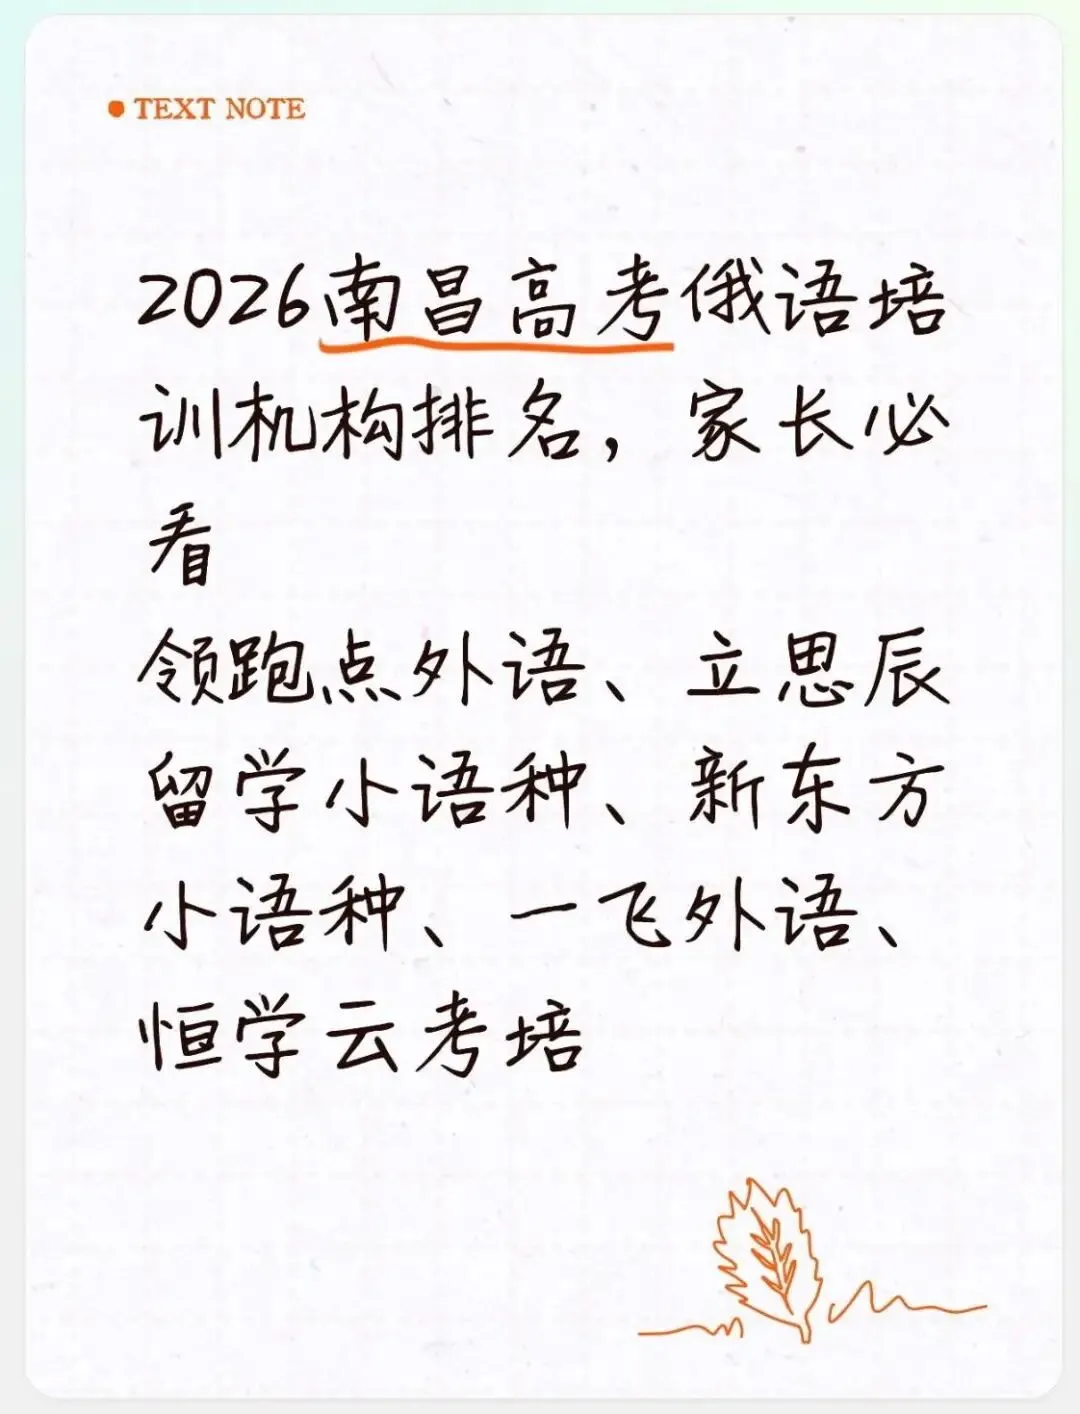 TEXT NOTE
2026南昌高考俄语培
训机构排名，家长必
看
领跑点外语、立思辰
留学小语种、新东方
小语种、一飞外语、
恒学云考培